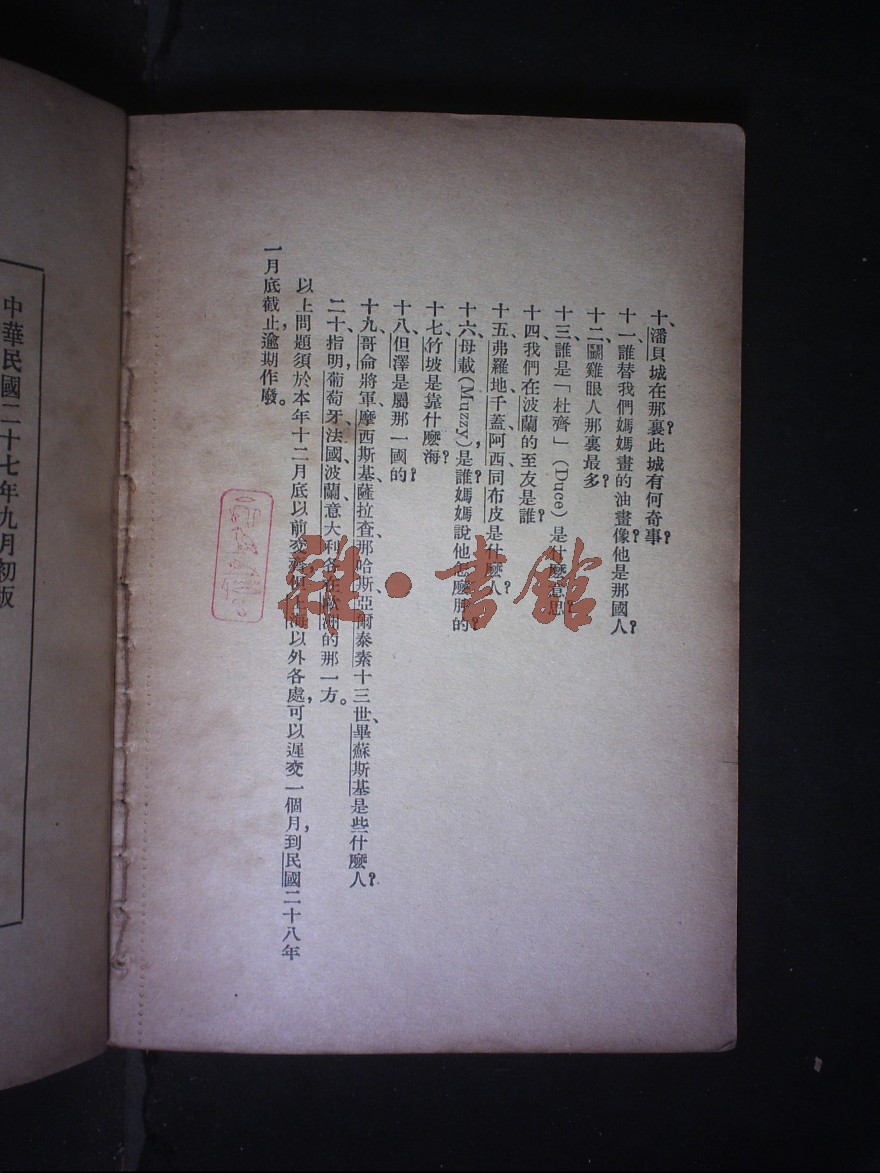 十、潘貝城在那裏?此城有何奇事?
十一、誰替我們媽媽畫的油畫像?他是那國人?
十二、鬭雞眼人那裏最多?
十三、誰是「杜齊」(Duce)是什麼意思?
十四、我們在波蘭的至友是誰?
十五、弗羅地、千蓋、阿西同布皮是什麼人?
十六、母載(Muzzy)是誰?媽媽說他怎麼胖的?
十七、竹坡是靠什麼海?
十八、但澤是屬那一國的?
十九、哥侖將軍、摩西斯基、薩拉查、那哈斯、亞爾泰素十三世、畢蘇斯基是些什麼人?
二十、指明葡萄牙、法國、波蘭、意大利各在歐洲的那一方。
以上問題須於本年十二月底以前交齊,上海以外各處可以遲交一個月,到民國二十八年
一月底截止,逾期作廢。
雜·書館
中華民國二十七年九月初版